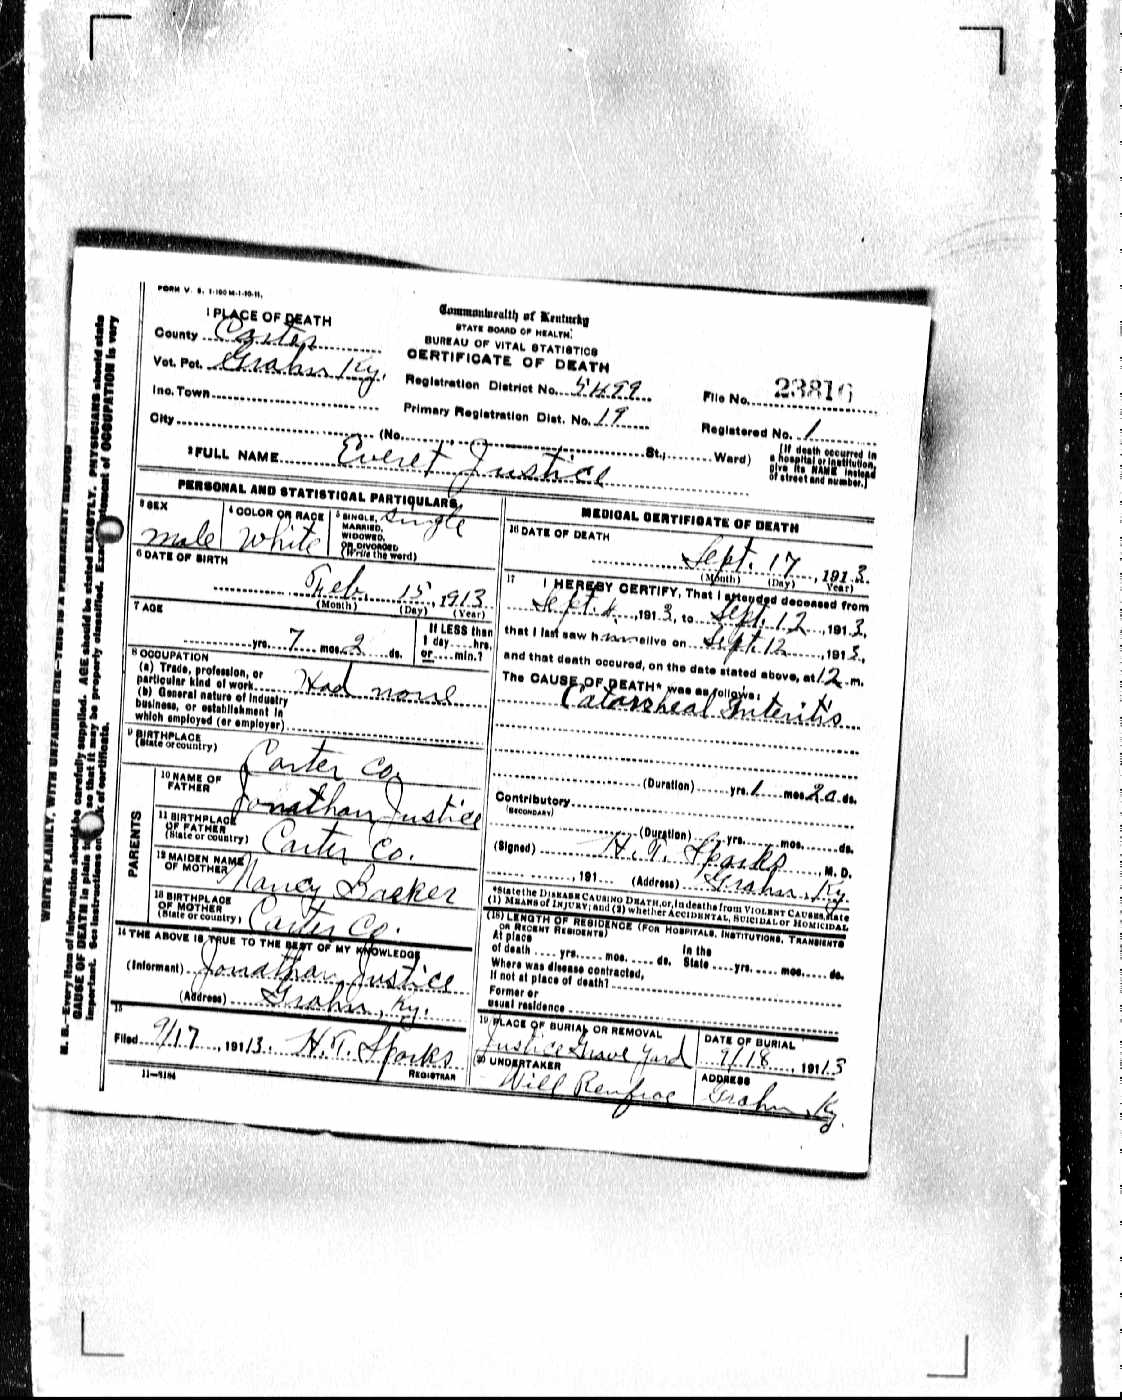 FORM V. S. 1-100 M-1-10-11.
1 PLACE OF DEATH
County Carter
Vot. Pct. Grahn Ky.
Inc. Town
City
Commonwealth of Kentucky
STATE BOARD OF HEALTH.
BUREAU OF VITAL STATISTICS
CERTIFICATE OF DEATH
Registration District No. 5499
Primary Registration Dist. No. 19
File No. 23816
Registered No. 1
(No. , St.; Ward)
[If death occurred in
a hospital or institution,
give its NAME instead
of street and number.]
2 FULL NAME Everet Justice
PERSONAL AND STATISTICAL PARTICULARS
3 SEX
male
4 COLOR OR RACE
White
5 SINGLE, single
MARRIED,
WIDOWED,
OR DIVORCED
(Write the word)
6 DATE OF BIRTH
Feb. 15, 1913
(Month) (Day) (Year)
7 AGE
yrs. 7 mos. 2 ds.
If LESS than
1 day hrs.
or min.?
8 OCCUPATION
(a) Trade, profession, or
particular kind of work Had none
(b) General nature of industry
business, or establishment in
which employed (or employer)
9 BIRTHPLACE
(State or country)
Carter Co.
PARENTS
10 NAME OF
FATHER
Jonathan Justice
11 BIRTHPLACE
OF FATHER
(State or country)
Carter Co.
12 MAIDEN NAME
OF MOTHER
Nancy Barker
13 BIRTHPLACE
OF MOTHER
(State or country)
Carter Co.
14 THE ABOVE IS TRUE TO THE BEST OF MY KNOWLEDGE
(Informant) Jonathan Justice
(Address) Grahn, Ky.
15
Filed 9/17, 1913. H. T. Sparks
REGISTRAR
11-9184
MEDICAL CERTIFICATE OF DEATH
16 DATE OF DEATH
Sept. 17, 1913.
(Month) (Day) Year)
17 I HEREBY CERTIFY, That I attended deceased from
Sept. 4, 1913, to Sept. 12, 1913,
that I last saw him alive on Sept. 12, 1913,
and that death occured, on the date stated above, at 12 m.
The CAUSE OF DEATH* was as follows:
Catarrheal Enteritis
(Duration) yrs. 1 mos. 20 ds.
Contributory
(SECONDARY)
(Duration) yrs. mos. ds.
(Signed) H. T. Sparks, M. D.
, 191 (Address) Grahn, Ky.
*State the DISEASE CAUSING DEATH, or, in deaths from VIOLENT CAUSES, state
(1) MEANS of INJURY; and (2) whether ACCIDENTAL, SUICIDAL or HOMICIDAL
(18) LENGTH OF RESIDENCE (FOR HOSPITALS, INSTITUTIONS, TRANSIENTS
OR RECENT RESIDENTS)
At place
of death yrs. mos. ds.
In the
State yrs. mos. ds.
Where was disease contracted,
If not at place of death?
Former or
usual residence
19 PLACE OF BURIAL OR REMOVAL
Justice Grave yard
DATE OF BURIAL
9/18, 1913
20 UNDERTAKER
Will Renfroe
ADDRESS
Grahn, Ky.
WRITE PLAINLY, WITH UNFADING INK—THIS IS A PERMANENT RECORD
N. B.—Every item of information should be carefully supplied. AGE should be stated EXACTLY. PHYSICIANS should state
CAUSE OF DEATH in plain so that it may be properly classified. Exact statement of OCCUPATION is very
important. See instructions on back of certificate.